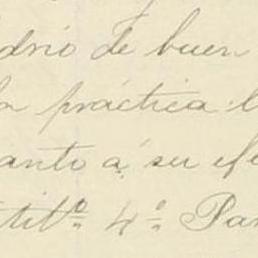 drio de buen
la práctica l
anto á su efe
tit.º 4.º Par